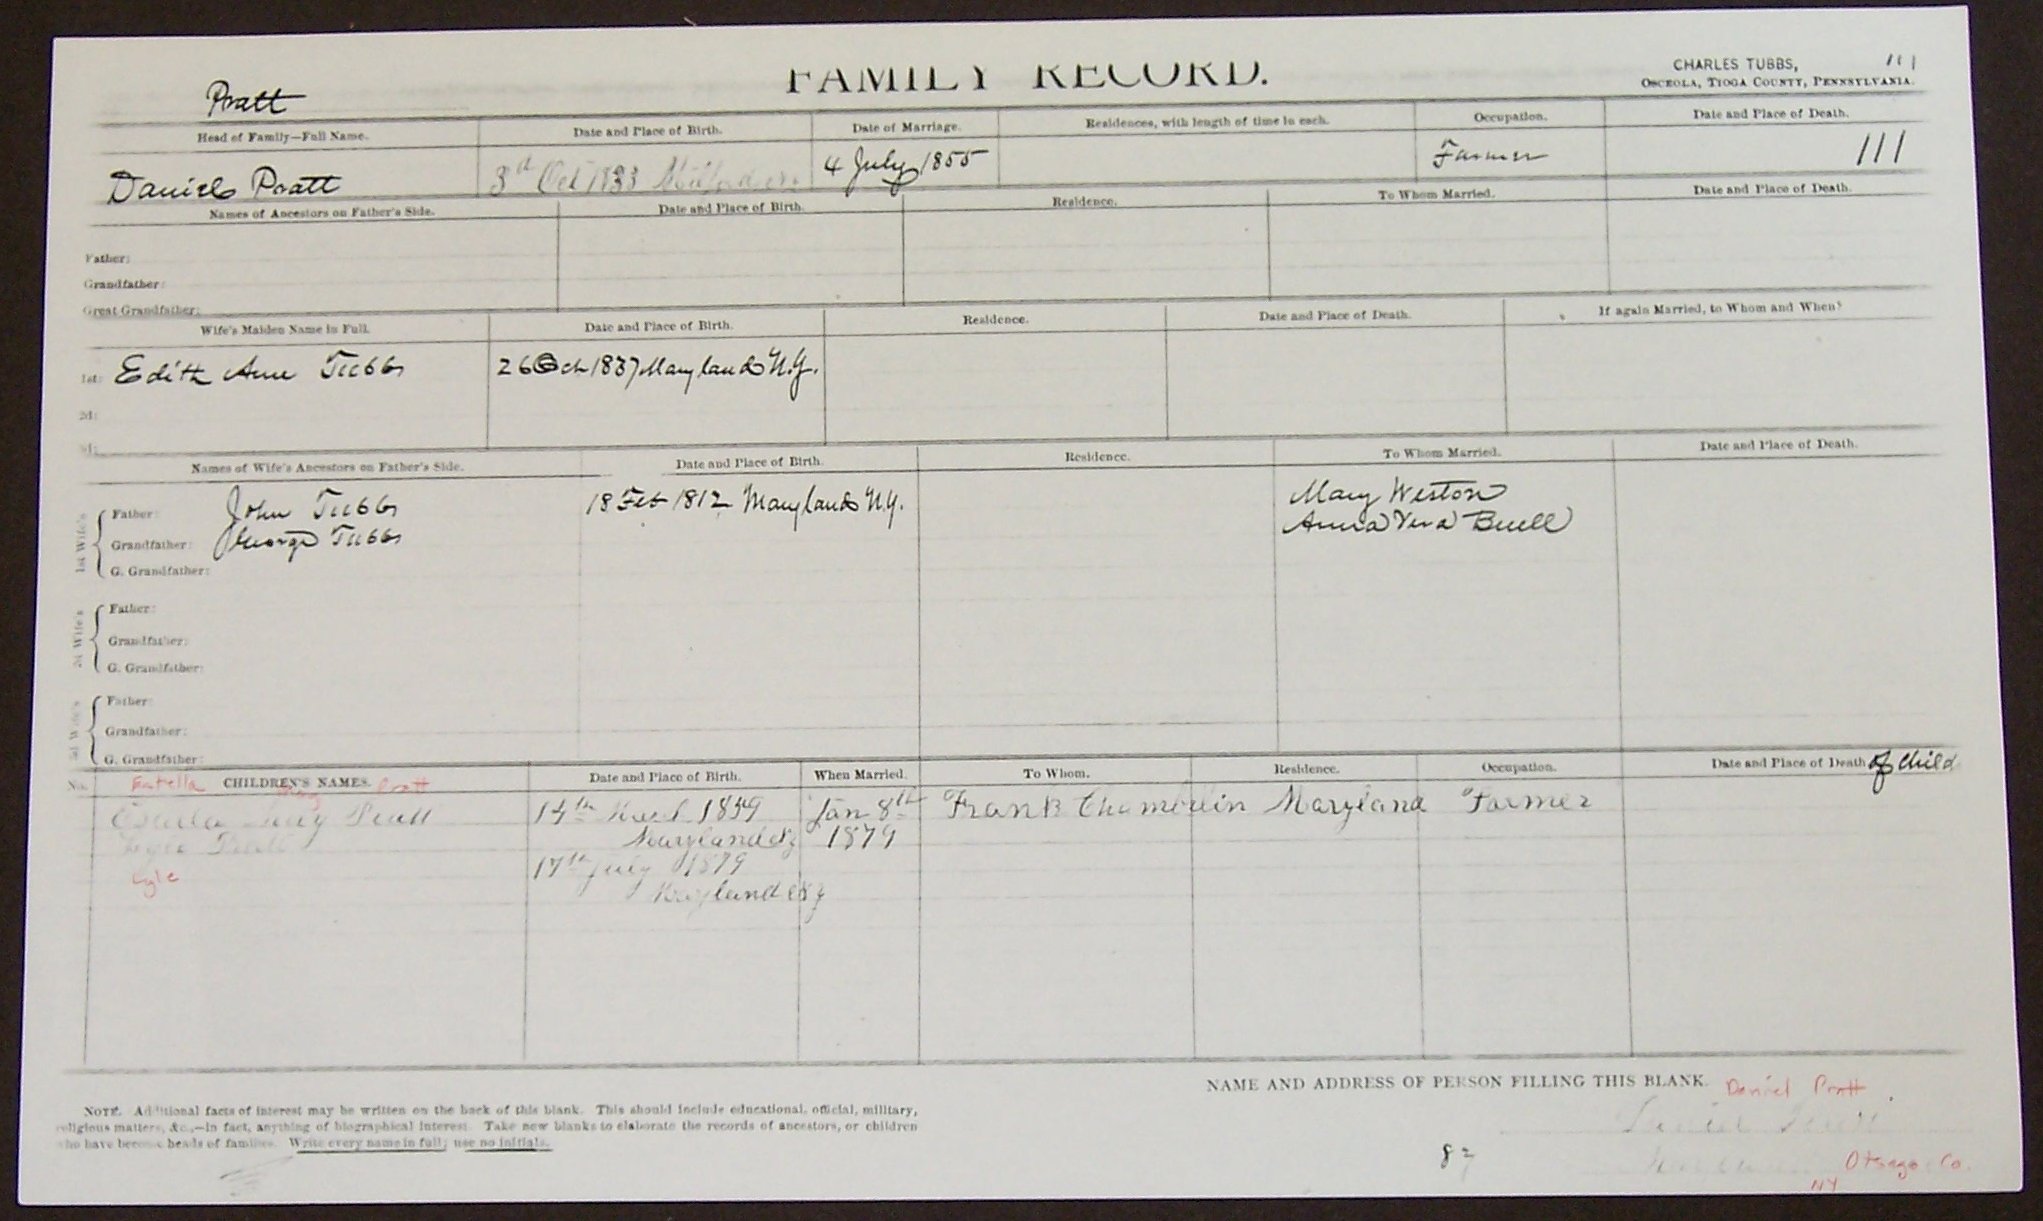 FAMILY RECORD.
CHARLES TUBBS,
OSCEOLA, TIOGA COUNTY, PENNSYLVANIA.
111
Pratt
Head of Family—Full Name. Date and Place of Birth. Date of Marriage. Residences, with length of time in each. Occupation. Date and Place of Death.
Daniel Pratt 3rd Oct 1833 4 July 1855 Farmer 111
Names of Ancestors on Father's Side. Date and Place of Birth. Residence. To Whom Married. Date and Place of Death.
Father:
Grandfather:
Great Grandfather:
Wife's Maiden Name in Full. Date and Place of Birth. Residence. Date and Place of Death. If again Married, to Whom and When?
1st: Edith Ann Tubbs 26 Oct 1837 Maryland N.Y.
2d:
3d:
Names of Wife's Ancestors on Father's Side. Date and Place of Birth. Residence. To Whom Married. Date and Place of Death.
1st Wife's
Father: John Tubbs 18 Feb 1812 Maryland N.Y. Mary Weston
Grandfather: George Tubbs Anna Buell
G. Grandfather:
2d Wife's
Father:
Grandfather:
G. Grandfather:
3d Wife's
Father:
Grandfather:
G. Grandfather:
No. CHILDREN'S NAMES. Date and Place of Birth. When Married. To Whom. Residence. Occupation. Date and Place of Death of Child
Pratt
Pratt 14th 1859 Jan 8th Frank Chamberlin Maryland Farmer
Pratt Maryland NY 1879
Lyle 17th July 1879
Maryland NY
NAME AND ADDRESS OF PERSON FILLING THIS BLANK.
Daniel Pratt
Daniel Pratt
Otsego Co.
NY
87
NOTE. Additional facts of interest may be written on the back of this blank. This should include educational, official, military,
religious matters, &c.,—in fact, anything of biographical interest. Take new blanks to elaborate the records of ancestors, or children
who have become heads of families. Write every name in full; use no initials.